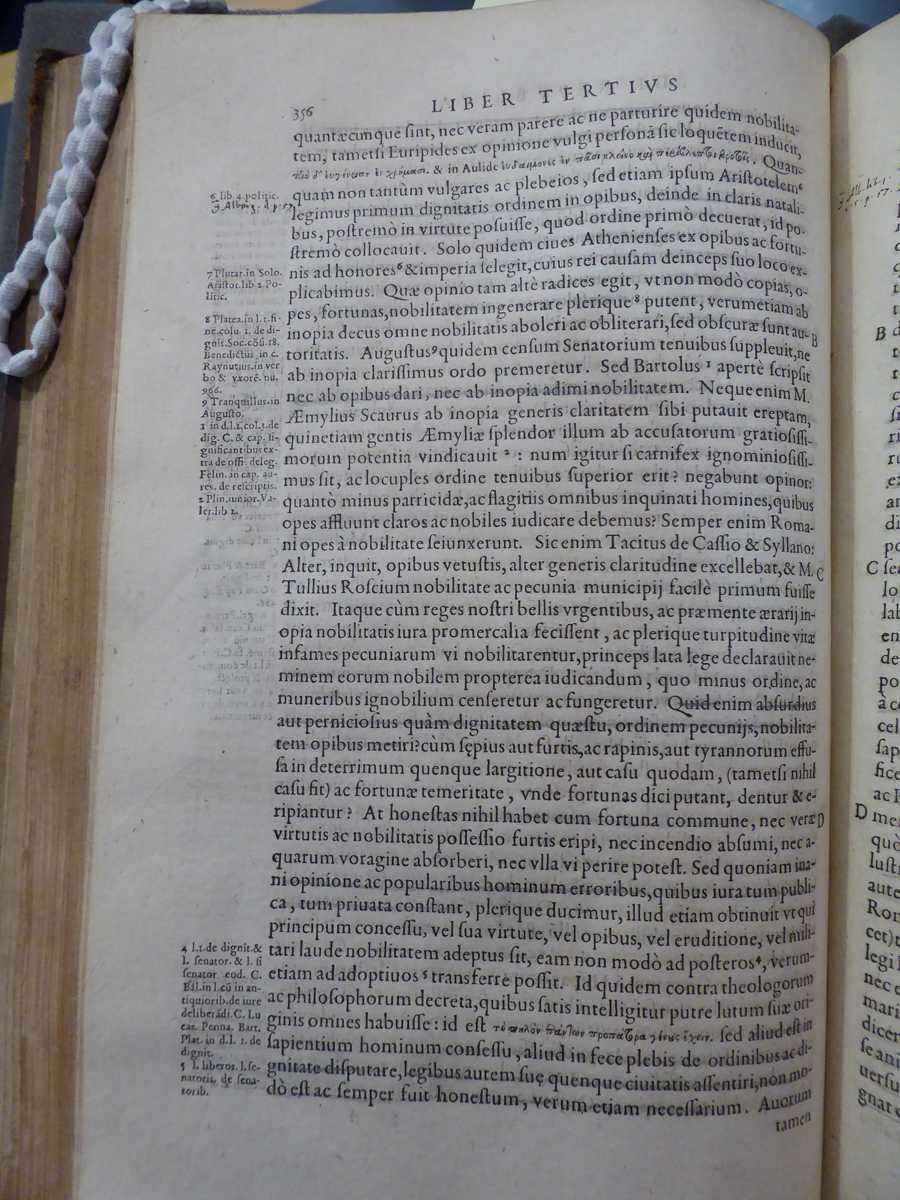 356
LIBER TERTIVS
quantæcunque sint, nec veram parere ac ne parturire quidem nobilita-
tem, tametsi Euripides ex opinione vulgi personā sic loquētem inducit,
& in Aulide . Quan-
quam non tantùm vulgares ac plebeios, sed etiam ipsum Aristotelem⁶
legimus primum dignitatis ordinem in opibus, deinde in claris natali-
bus, postremò in virtute posuisse, quod ordine primò decuerat, id po-
stremò collocauit. Solo quidem ciues Athenienses ex opibus ac fortu-
nis ad honores⁶ & imperia selegit, cuius rei causam deinceps suo loco ex-
plicabimus. Quæ opinio tam altè radices egit, vt non modò copias, o-
pes, fortunas, nobilitatem ingenerare plerique⁸ putent, verumetiam ab
inopia decus omne nobilitatis aboleri ac obliterari, sed obscuræ sunt au-
B
toritatis. Augustus⁹ quidem censum Senatorium tenuibus suppleuit, ne
ab inopia clarissimus ordo premeretur. Sed Bartolus¹ apertè scripsit
nec ab opibus dari, nec ab inopia adimi nobilitatem. Neque enim M.
Æmylius Scaurus ab inopia generis claritatem sibi putauit ereptam,
quinetiam gentis Æmyliæ splendor illum ab accusatorum gratiosissi-
morum potentia vindicauit²: num igitur si carnifex ignominiosissi-
mus sit, ac locuples ordine tenuibus superior erit? negabunt opinor:
quantò minus parricidæ, ac flagitiis omnibus inquinati homines, quibus
opes affluunt claros ac nobiles iudicare debemus? Semper enim Roma-
ni opes à nobilitate seiunxerunt. Sic enim Tacitus de Cassio & Syllano:
Alter, inquit, opibus vetustis, alter generis claritudine excellebat, & M.
C
Tullius Roscium nobilitate ac pecunia municipij facilè primum fuisse
dixit. Itaque cùm reges nostri bellis vrgentibus, ac præmente ærarij in-
opia nobilitatis iura promercalia fecissent, ac plerique turpitudine vitæ
infames pecuniarum vi nobilitarentur, princeps lata lege declarauit ne-
minem eorum nobilem propterea iudicandum, quo minus ordine, ac
muneribus ignobilium censeretur ac fungeretur. Quid enim absurdius
aut perniciosius quàm dignitatem quæstu, ordinem pecunijs, nobilita-
tem opibus metiri? cùm sępius aut furtis, ac rapinis, aut tyrannorum effu-
sa in deterrimum quenque largitione, aut casu quodam, (tametsi nihil
casu fit) ac fortunæ temeritate, vnde fortunas dici putant, dentur & e-
ripiantur? At honestas nihil habet cum fortuna commune, nec veræ
D
virtutis ac nobilitatis possessio furtis eripi, nec incendio absumi, nec a-
quarum voragine absorberi, nec vlla vi perire potest. Sed quoniam ina-
ni opinione ac popularibus hominum erroribus, quibus iura tum publi-
ca, tum priuata constant, plerique ducimur, illud etiam obtinuit vt qui
principum concessu, vel sua virtute, vel opibus, vel eruditione, vel mili-
tari laude nobilitatem adeptus sit, eam non modò ad posteros⁴, verum-
etiam ad adoptiuos⁵ transferre possit. Id quidem contra theologorum
ac philosophorum decreta, quibus satis intelligitur putre lutum suæ ori-
ginis omnes habuisse: id est . sed aliud est in
sapientium hominum consessu, aliud in fece plebis de ordinibus ac di-
gnitate disputare, legibus autem suę quenque ciuitatis assentiri, non mo-
dò est ac semper fuit honestum, verum etiam necessarium. Auorum
tamen
6 lib 4. politic.
7 Plutar. in Solo.
Aristot. lib 2. Po-
litic.
8 Platea. in l. 1. fi-
ne. colu. 1. de di-
gnit. Soc. cōsi. 18.
Benedictus in c.
Raynutius. in ver
bo & vxorē. nu.
966.
9 Tranquillus. in
Augusto.
1 in d. l. 1. col. 1. de
dig. C. & cap. si-
gnificantibus ex-
tra de offi. deleg.
Felin. in cap. au-
res. de rescriptis.
2 Plin. iunior. Va-
ler. lib 2.
4 l. 1. de dignit. &
l. senator. & l. si
senator. eod. C.
Bal. in l. cū in an-
tiquiorib. de iure
deliberādi. C. Lu
cas. Penna. Bart.
Plat. in d. l. 1. de
dignit.
5 l. liberos. l. se-
natoris. de sena-
torib.
B
C
D